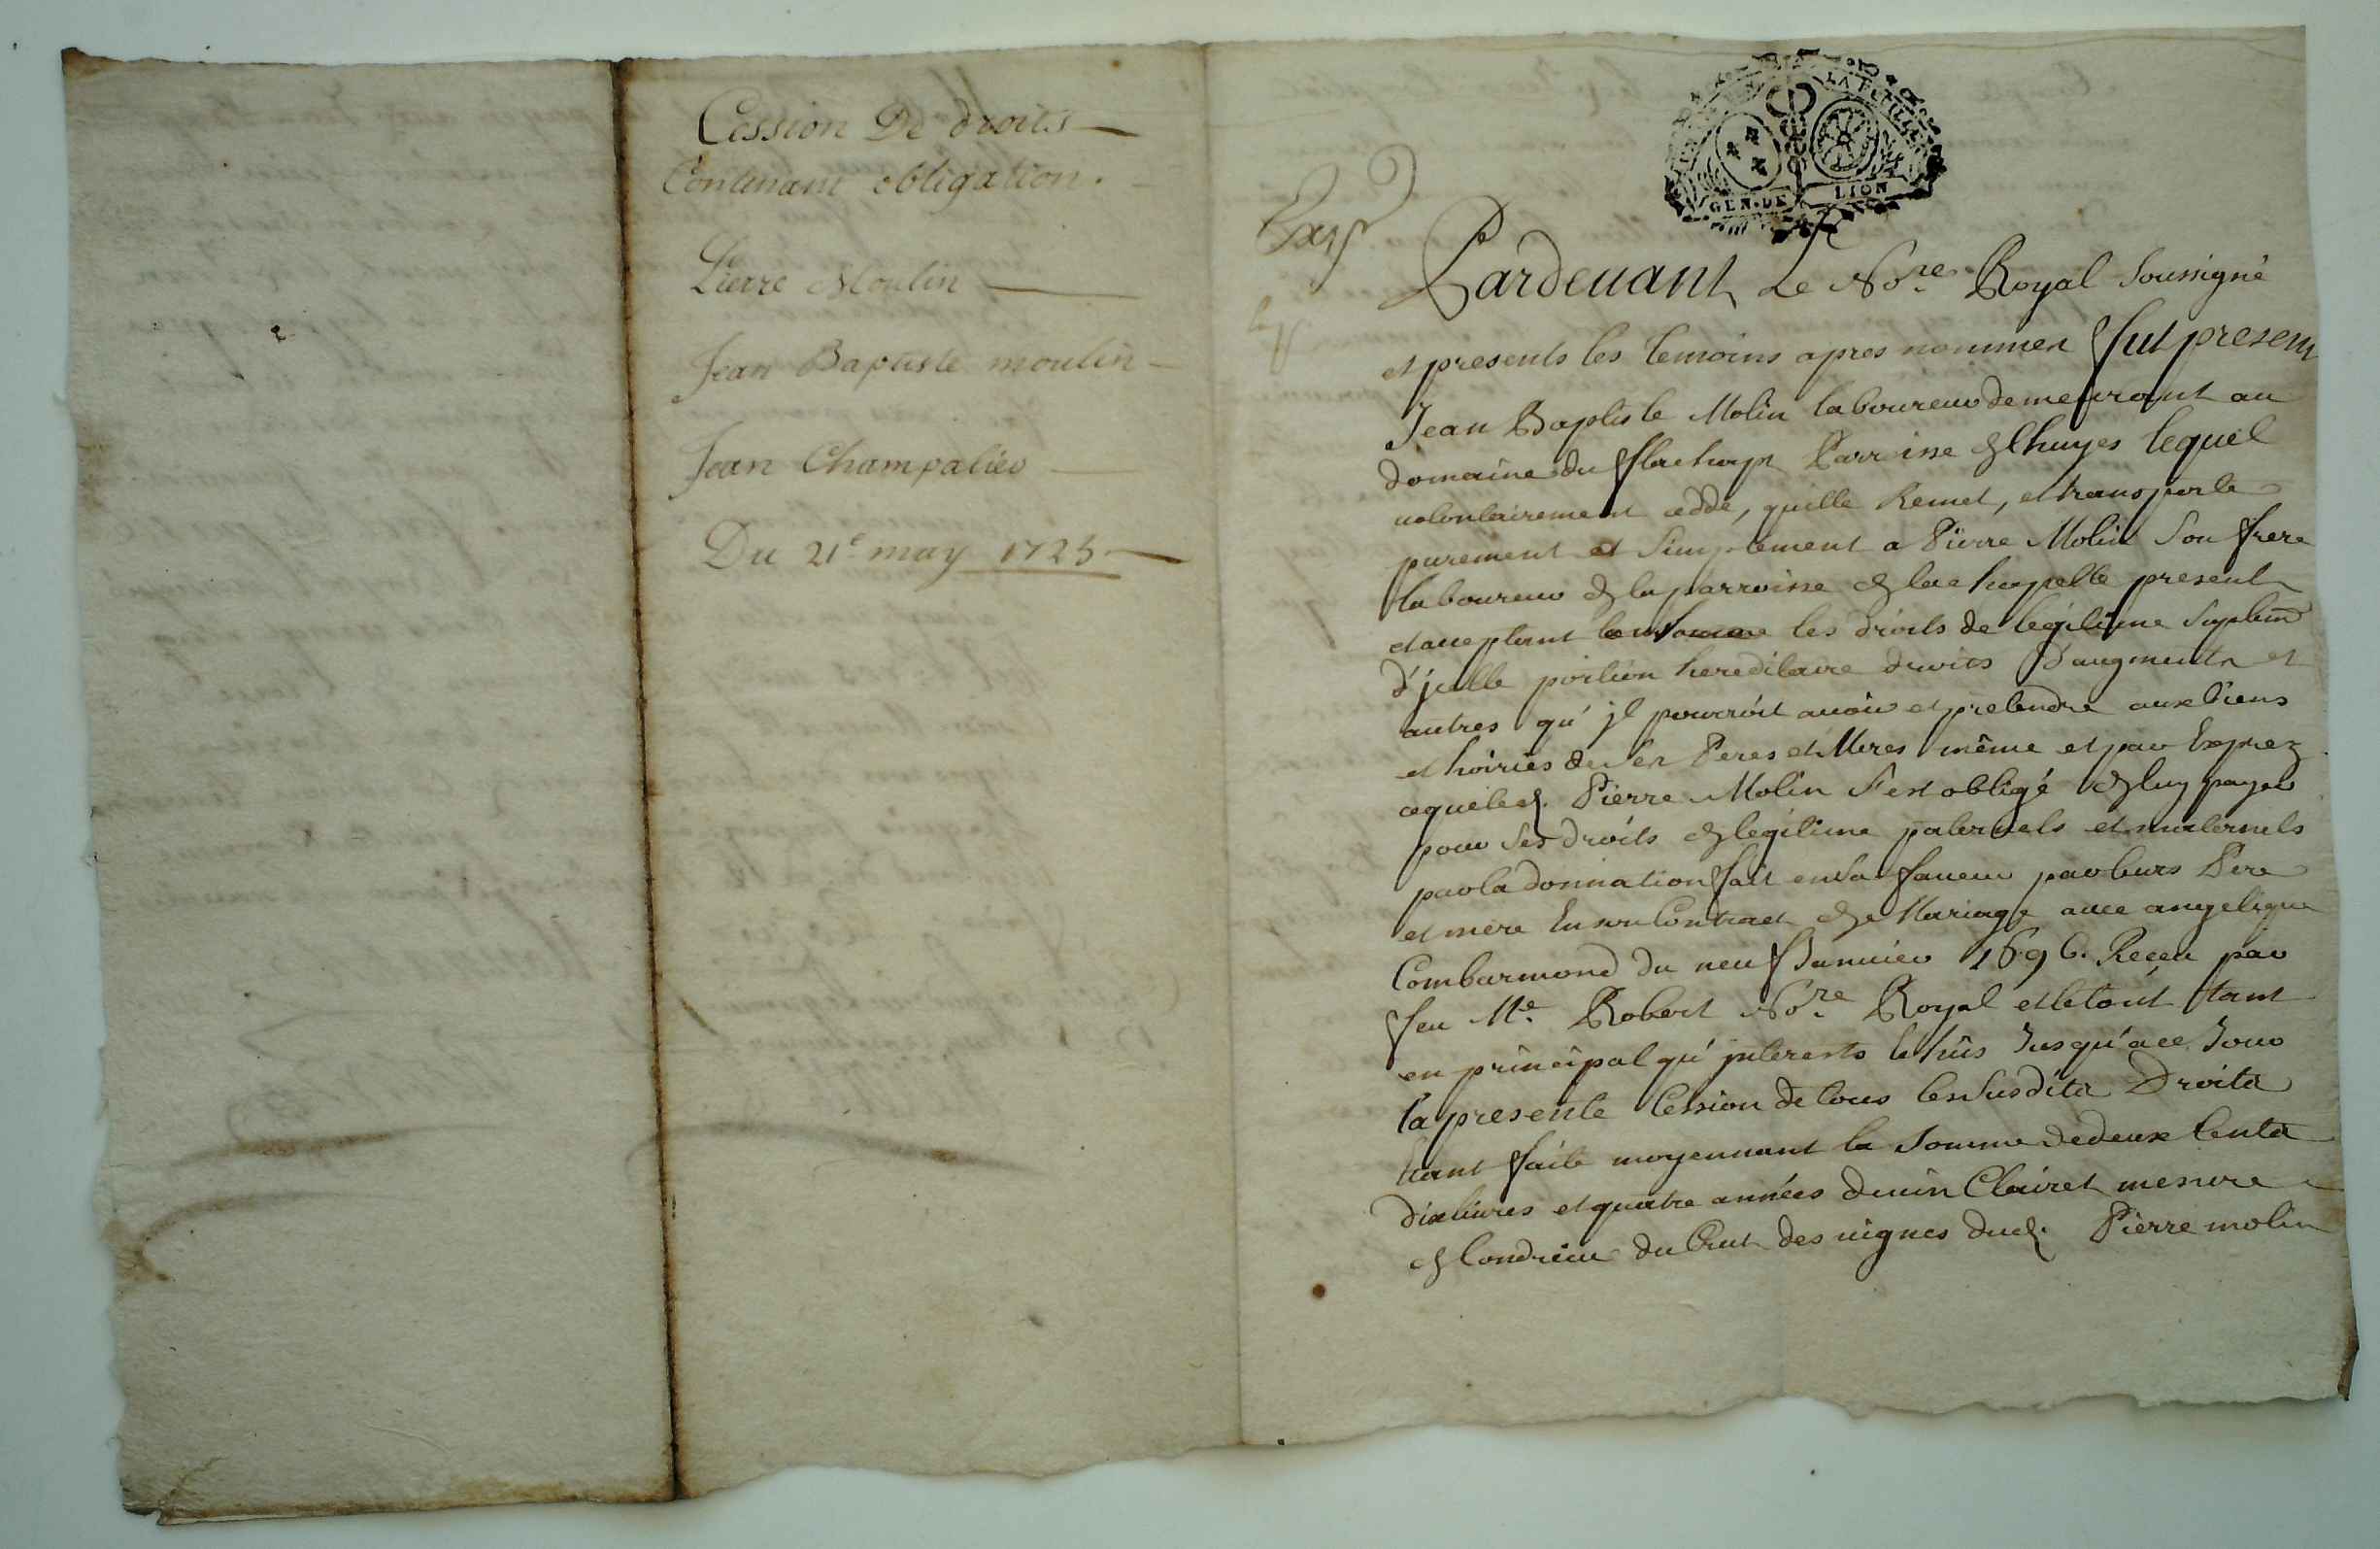 Cession De droits
Contenant obligation.
Pierre Moulin
Jean Baptiste moulin
Jean Champalier
Du 21e may 1725
LA FEUILLE
GEN. DE LION
Pardeuant Le No.re Royal Soussigné
et presents les temoins apres nommer fut present
Jean Baptiste Molin laboureur demeurant au
domaine du Parroisse lequel
uolontairement cedde, quitte Remet, et transporte
purement et Simplement a Pierre Molin Son frere
laboureur de la parroisse de la chapelle present
et acceptant les droits de legitime
d'jcelle portion hereditaire droits D'augments et
autres qu'jl pourroit auoir et pretendre aux biens
et hoiries de Ses Peres et Meres même et par Exprez
ceque led. Pierre Molin S'est obligé de luy payer
pour Ses droits de legitime paternels et maternels
par la donnation fait en Sa faueur par leurs Pere
et mere En son Contract de Mariage auec angelique
Combarmond du neuf Januier 1696. Reçeu par
feu Me. Robert No.re Royal et le tout tant
en principal qu'jnterests Jusqu'a ce Jour
la presente Cession de tous les Susdits Droits
Etant faite moyennant la Somme de deux Cents
dix liures et quatre années de uin Clairet mesure
de Condrieu du Crut des uignes dud. Pierre molin